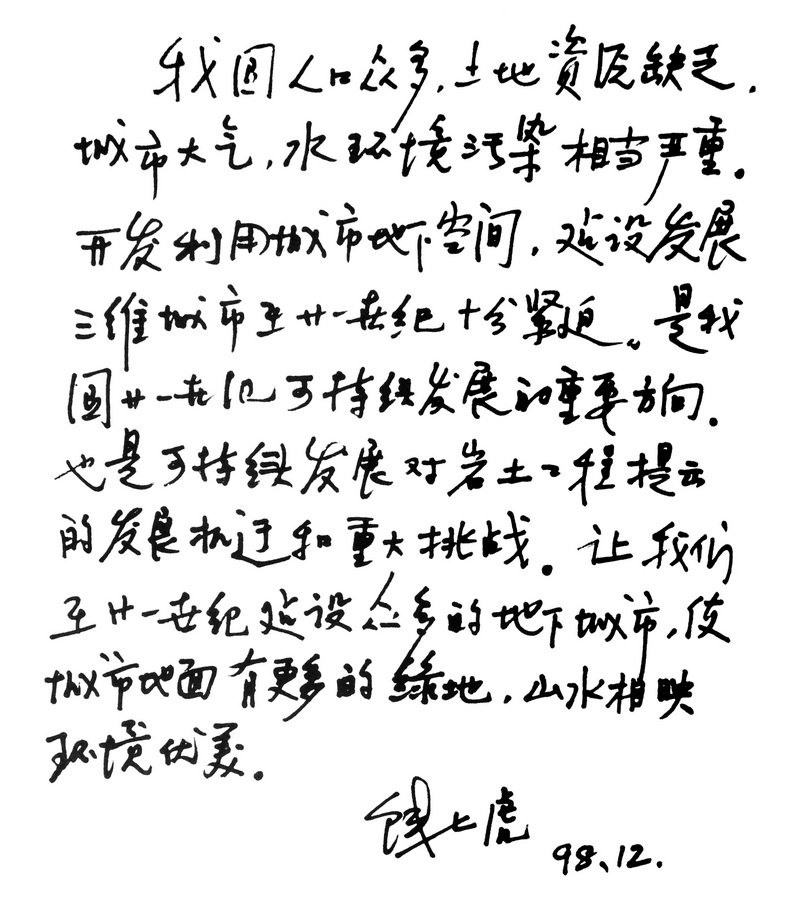 我国人口众多，土地资源缺乏，
城市大气，水环境污染相当严重。
开发利用城市地下空间，建设发展
三维城市至廿一世纪十分紧迫。是我
国廿一世纪可持续发展的重要方向，
也是可持续发展对岩土工程提示
的发展机遇和重大挑战。让我们
至廿一世纪建设众多的地下城市，使
城市地面有更多的绿地，山水相映
环境优美。
钱七虎 98、12.